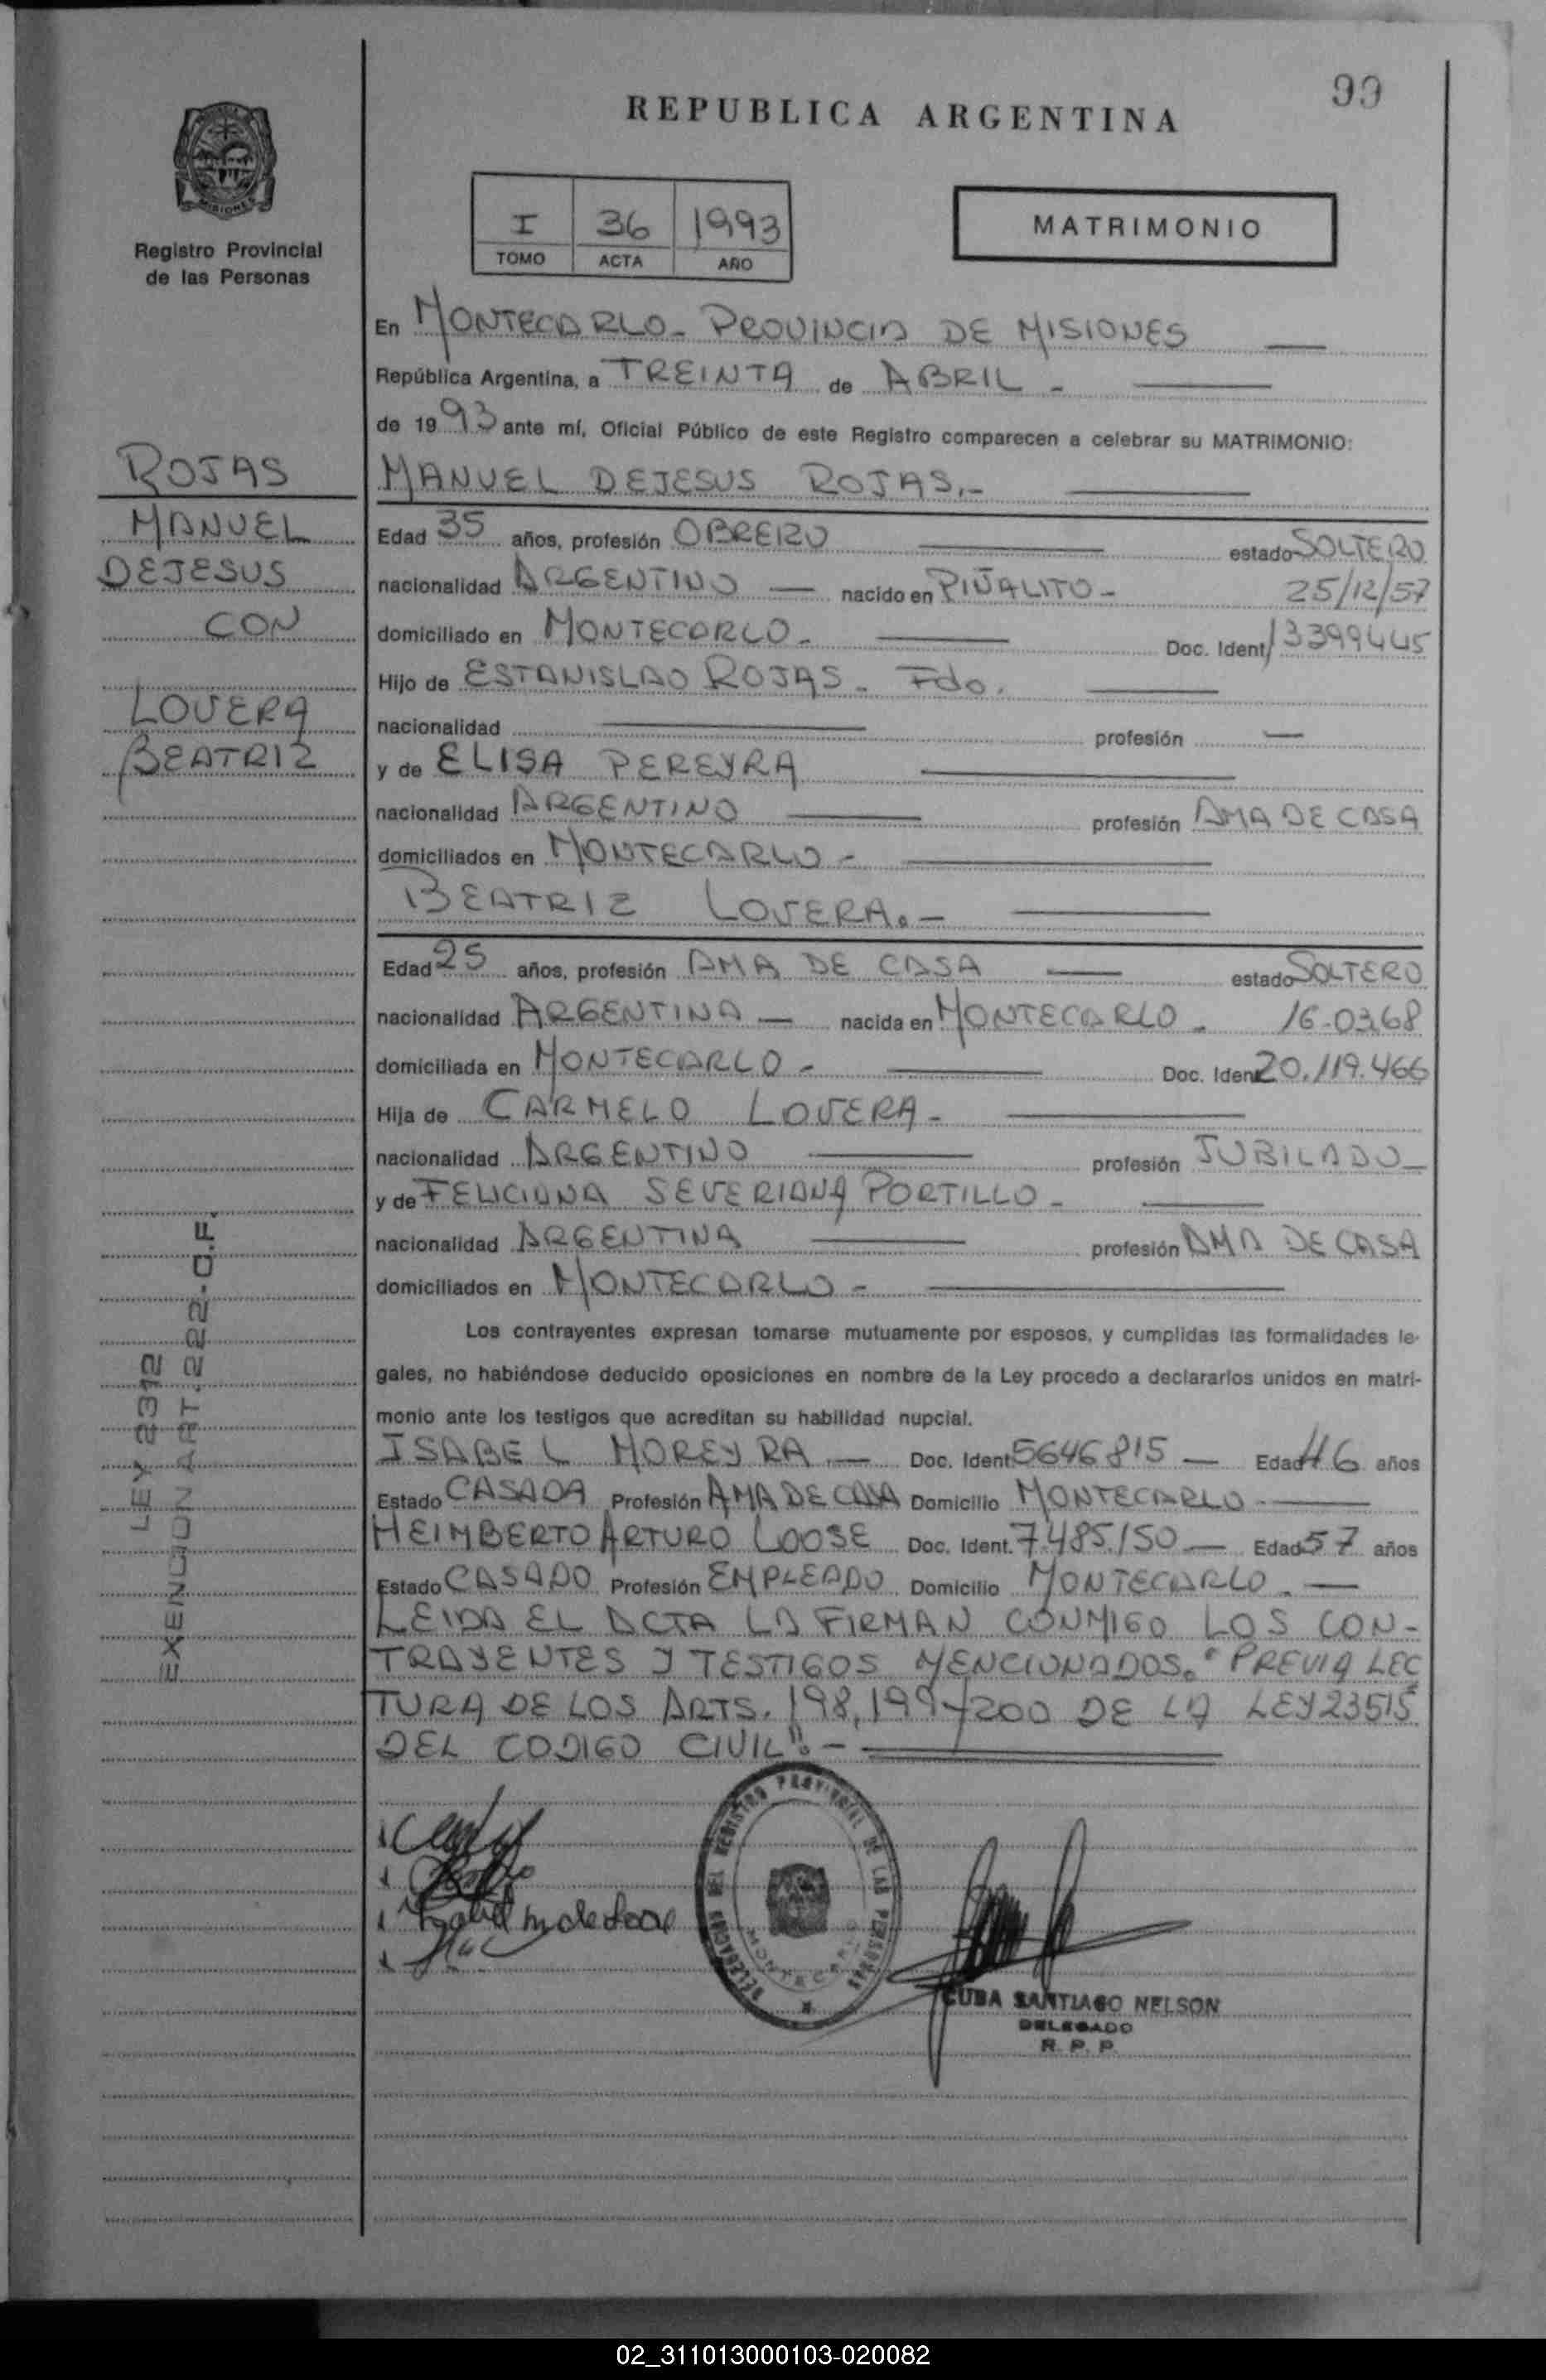 99
REPUBLICA ARGENTINA
MISIONES
Registro Provincial
de las Personas
I 36 1993
TOMO ACTA AÑO
MATRIMONIO
ROJAS
MANUEL
DEJESUS
CON
LOVERA
BEATRIZ
LEY 2312
EXENCION ART. 222 - O.F.
En MONTECARLO - PROVINCIA DE MISIONES
República Argentina, a TREINTA de ABRIL -
de 1993 ante mí, Oficial Público de este Registro comparecen a celebrar su MATRIMONIO:
MANUEL DEJESUS ROJAS.-
Edad 35 años, profesión OBRERO estado SOLTERO
nacionalidad ARGENTINO nacido en PIÑALITO - 25/12/57
domiciliado en MONTECARLO - Doc. Ident. 13399445
Hijo de ESTANISLAO ROJAS - Fdo.
nacionalidad profesión
y de ELISA PEREYRA
nacionalidad ARGENTINO profesión AMA DE CASA
domiciliados en MONTECARLO -
BEATRIZ LOVERA.-
Edad 25 años, profesión AMA DE CASA estado SOLTERO
nacionalidad ARGENTINA nacida en MONTECARLO - 16-03.68
domiciliada en MONTECARLO - Doc. Ident 20.119.466
Hija de CARMELO LOVERA -
nacionalidad ARGENTINO profesión JUBILADO
y de FELICIANA SEVERIANA PORTILLO -
nacionalidad ARGENTINA profesión AMA DE CASA
domiciliados en MONTECARLO -
Los contrayentes expresan tomarse mutuamente por esposos, y cumplidas las formalidades le-
gales, no habiéndose deducido oposiciones en nombre de la Ley procedo a declararlos unidos en matri-
monio ante los testigos que acreditan su habilidad nupcial.
ISABEL MOREYRA.- Doc. Ident. 5646815 - Edad 46 años
Estado CASADA Profesión AMA DE CASA Domicilio MONTECARLO -
HEIMBERTO ARTURO LOOSE Doc. Ident. 7.485.150 - Edad 57 años
Estado CASADO Profesión EMPLEADO Domicilio MONTECARLO. -
LEIDA EL ACTA LA FIRMAN CONMIGO LOS CON-
TRAYENTES Y TESTIGOS MENCIONADOS. "PREVIA LEC
TURA DE LOS ARTS. 198, 199 y 200 DE LA LEY 23515
DEL CODIGO CIVIL". -
DELEGACION DEL REGISTRO PROVINCIAL DE LAS PERSONAS
MONTECARLO
CUBA SANTIAGO NELSON
DELEGADO
R. P. P.
02_311013000103-020082